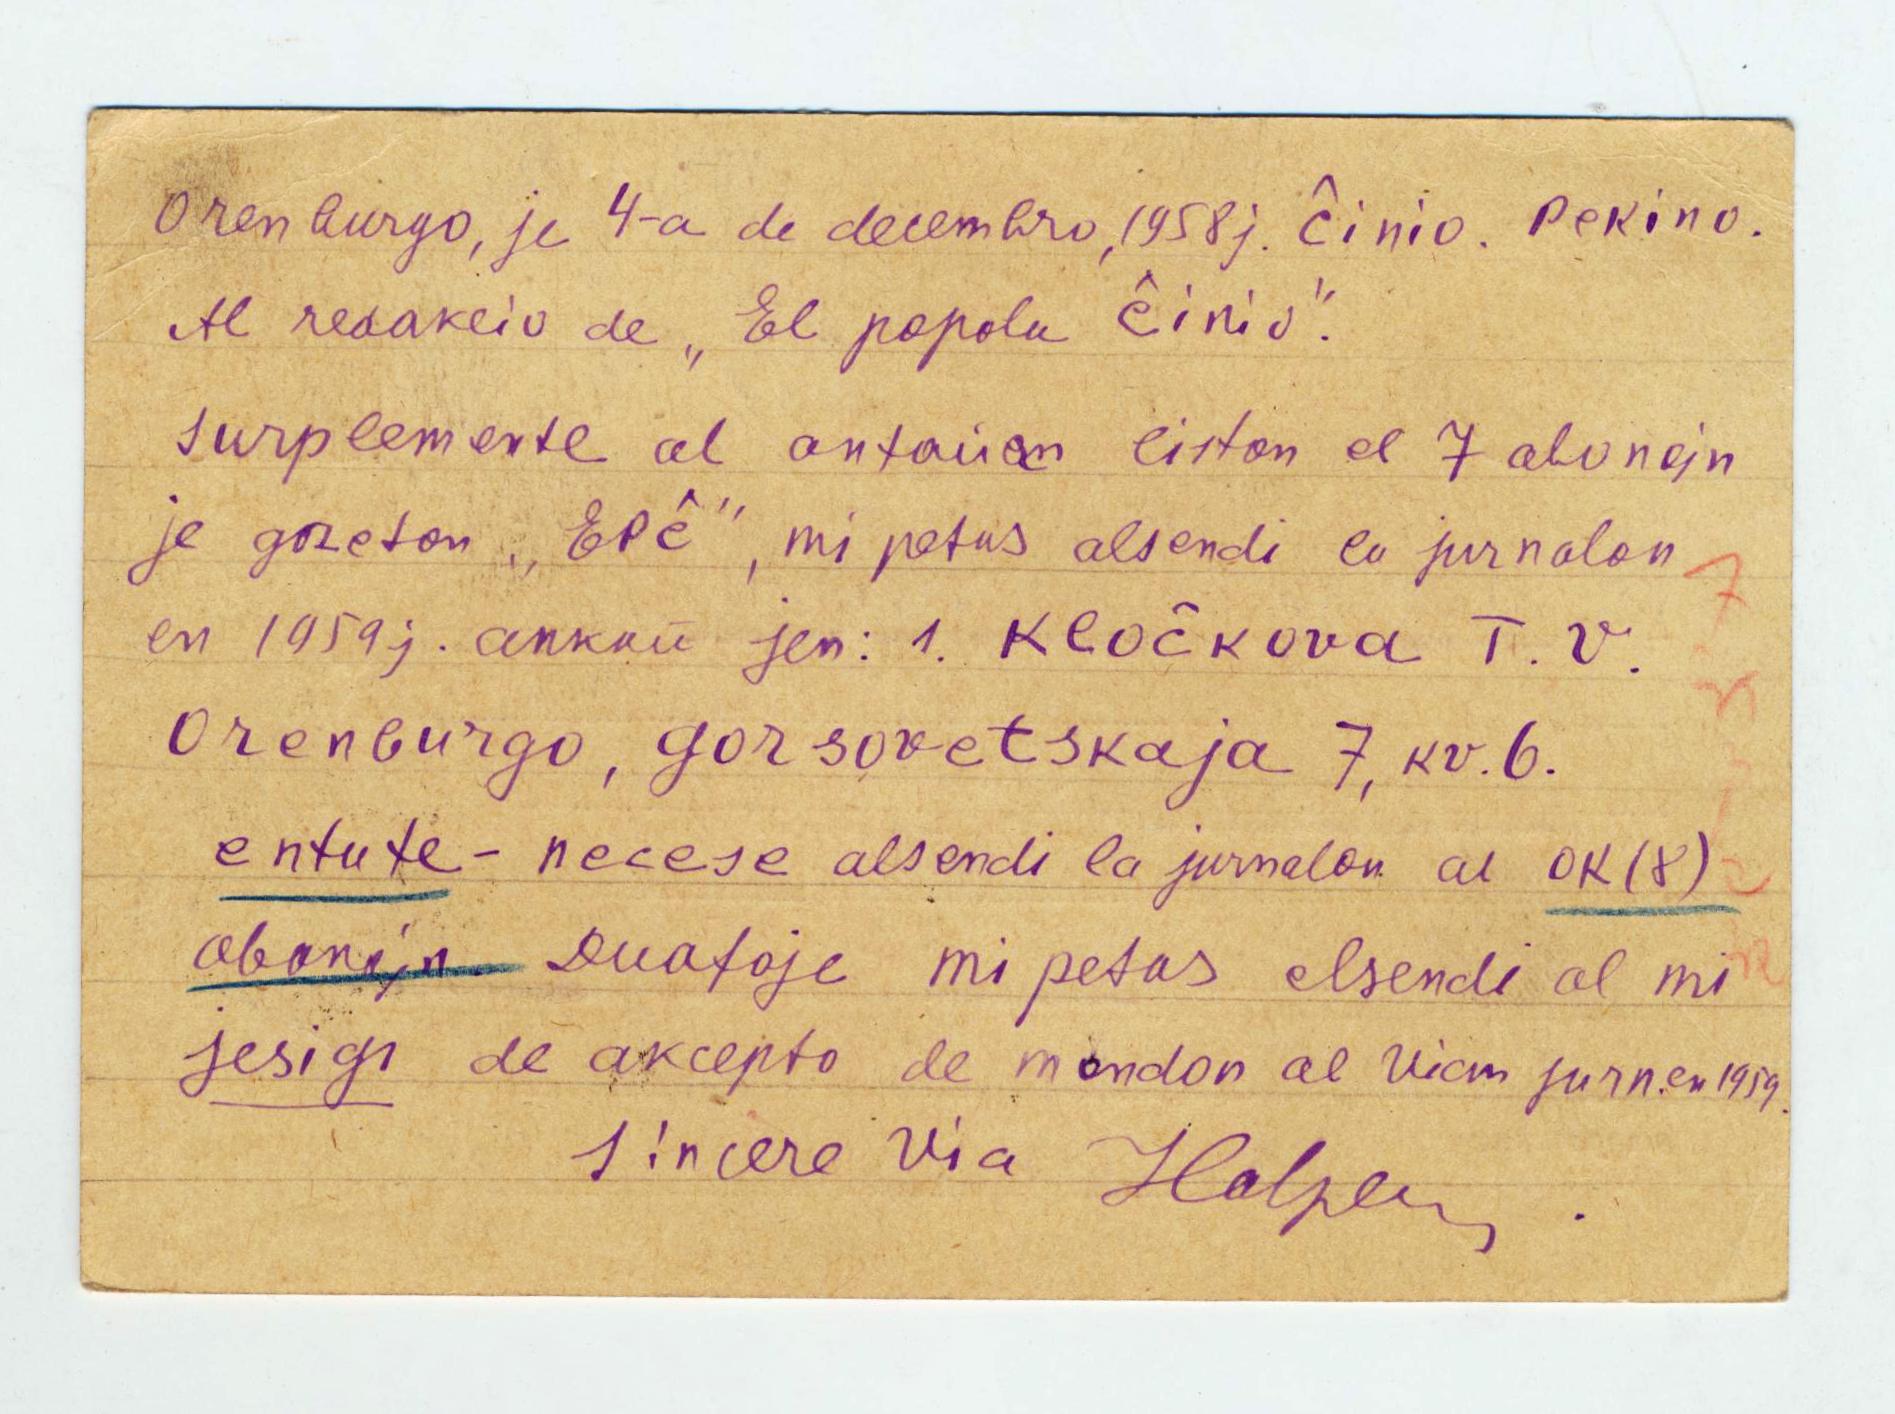 Orenburgo, je 4-a de decembro, 1958j. Ĉinio. Pekino.
Al redakcio de „El popola Ĉinio".
Surplemente al antaŭan liston el 7 abonojn
je gazeton „EPĈ", mi petas alsendi la jurnalon
en 1959j. ankaŭ jen: 1. Kloĉkova T. V.
Orenburgo, gorsovetskaja 7, kv. 6.
entute - necese alsendi la jurnalon al OK (8)
abonojn. Duafoje mi petas elsendi al mi
jesigi de akcepto de mendon al Vian jurn. en 1959.
Sincere Via Halpern.